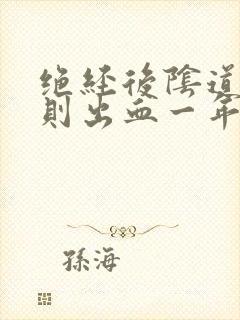 绝经後陰道
則出血一年
孫海